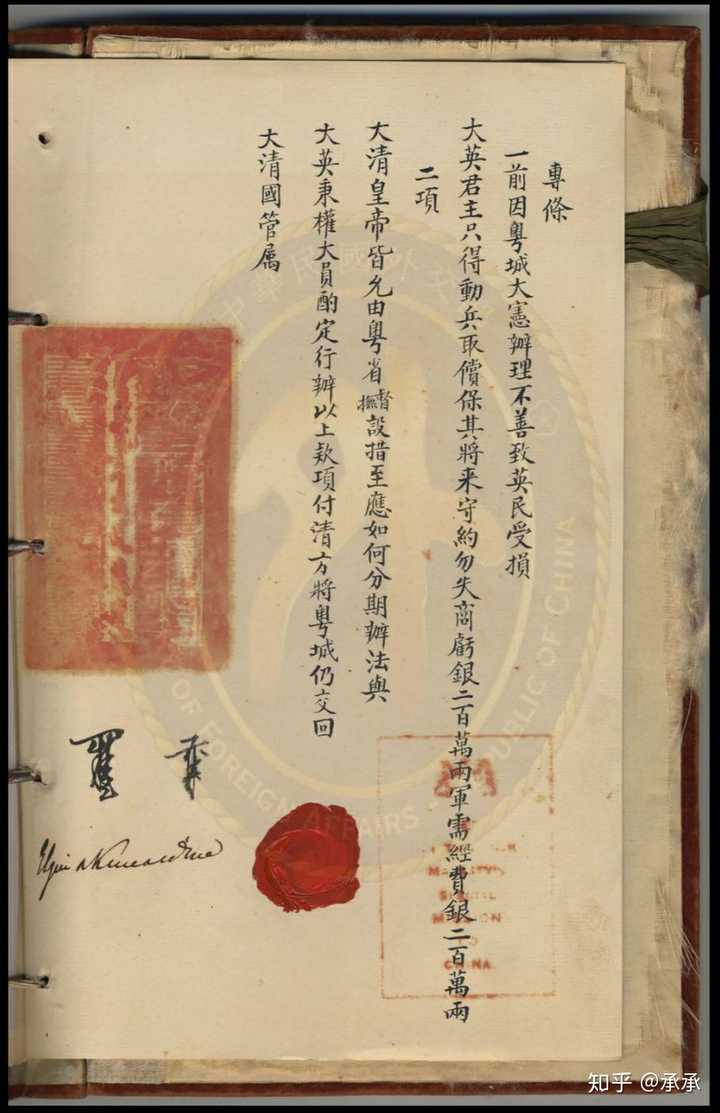 專條
一前因粵城大憲辦理不善致英民受損
大英君主只得動兵取償保其將来守約勿失商虧銀二百萬兩軍需經費銀二百萬兩
二項
大清皇帝皆允由粵省督撫設措至應如何分期辦法與
大英秉權大員酌定行辦以上款項付清方將粵城仍交回
大清國管属
Elgin & Kincardine
MAJESTY'S
SPECIAL
MISSION
TO
CHINA
OF FOREIGN AFFAIRS
REPUBLIC OF CHINA
知乎 @承承